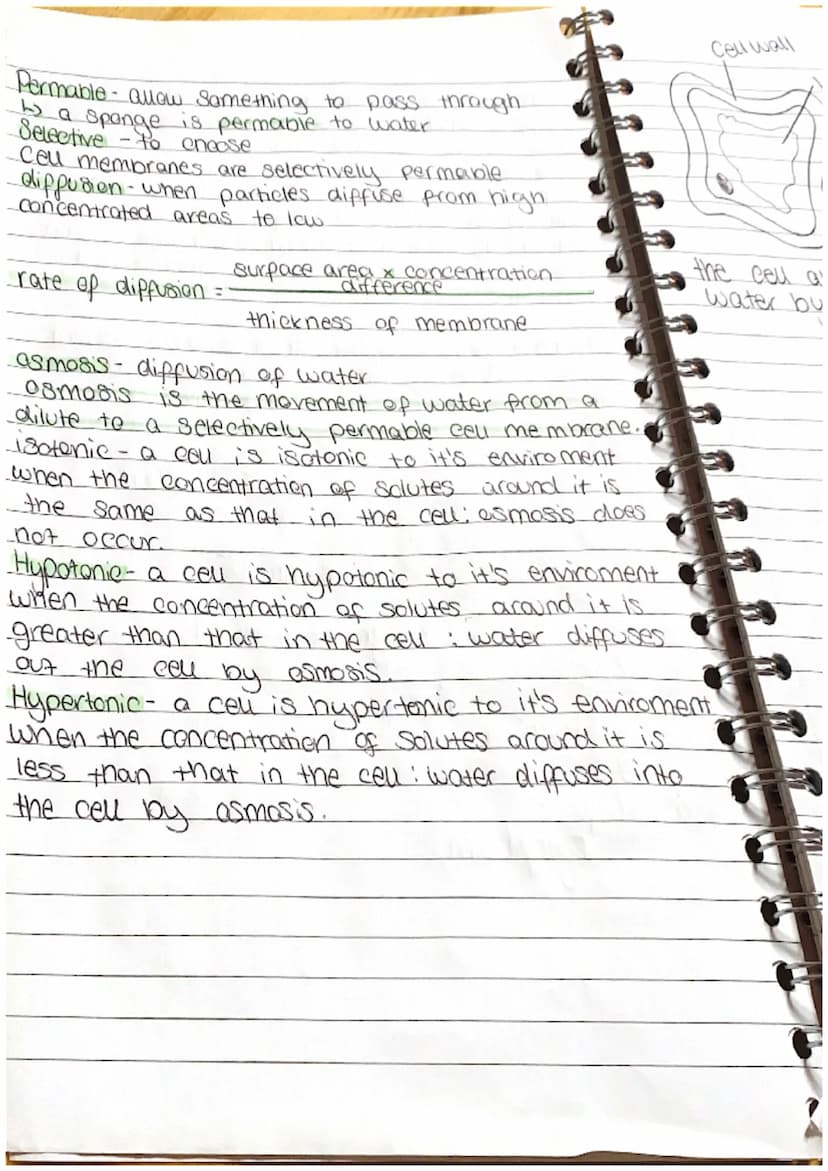 Permable - allow something to pass through
↳ a sponge is permable to water
Selective - to choose
Cell membranes are selectively permable
diffusion - when particles diffuse from high
concentrated areas to low
rate of diffusion = surface area x concentration
difference
thickness of membrane
osmosis - diffusion of water
osmosis is the movement of water from a
dilute to a selectively permable cell membrane.
isotonic - a cell is isotonic to it's enviroment
when the concentration of solutes around it is
the same as that in the cell: osmosis does
not occur.
Hypotonic - a cell is hypotonic to it's enviroment
when the concentration of solutes around it is
greater than that in the cell : water diffuses
out the cell by osmosis.
Hypertonic - a cell is hypertonic to it's enviroment
when the concentration of solutes around it is
less than that in the cell : water diffuses into
the cell by osmosis.
cell wall
the cell
water by